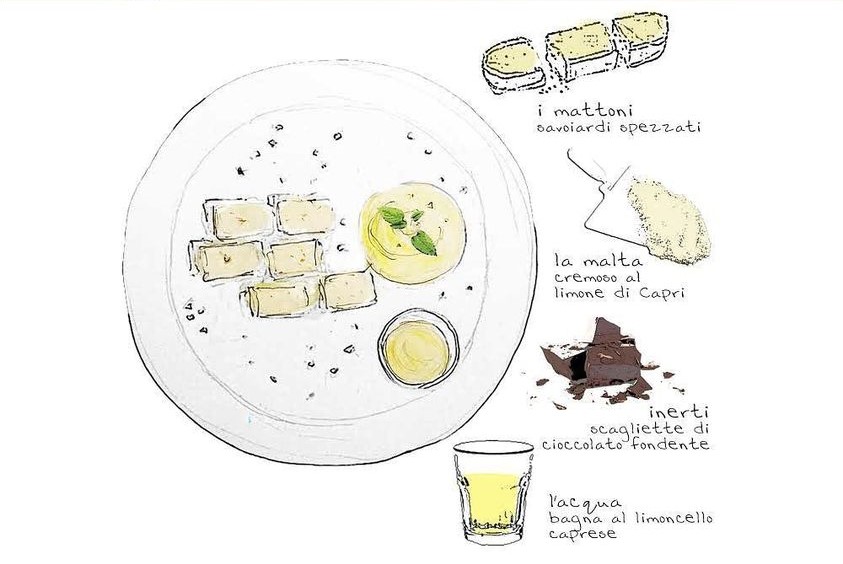 i mattoni
savoiardi spezzati
la malta
cremoso al
limone di Capri
inerti
scagliette di
cioccolato fondente
l'acqua
bagna al limoncello
caprese